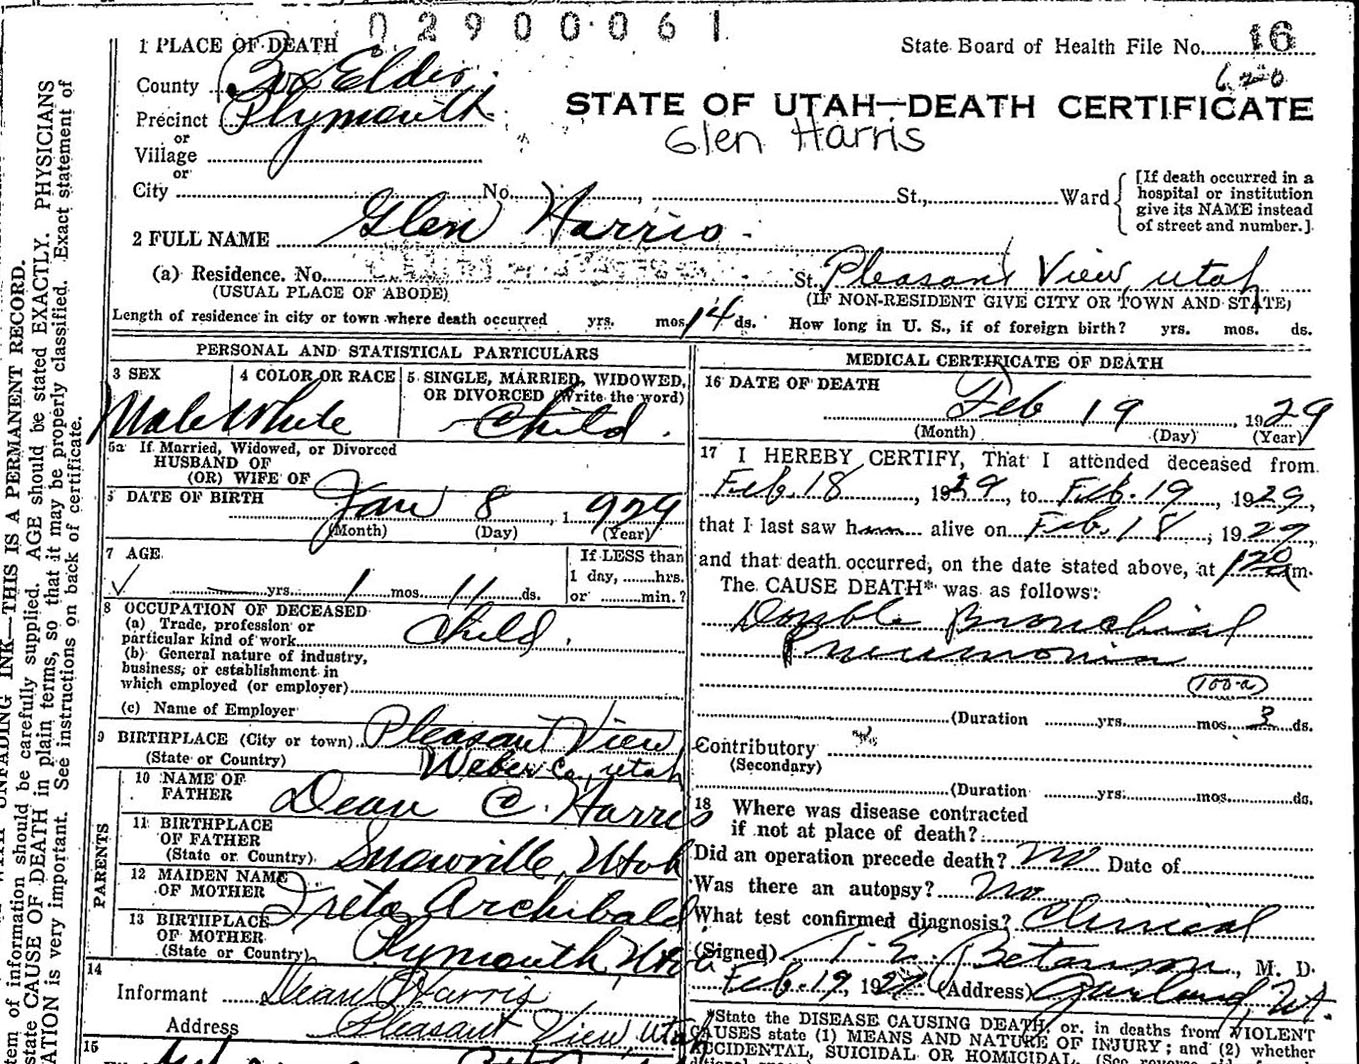 02900061
1 PLACE OF DEATH
State Board of Health File No. 16
620
County Box Elder
STATE OF UTAH—DEATH CERTIFICATE
Precinct Plymouth
Glen Harris
or
Village
or
City No. St., Ward
[If death occurred in a
hospital or institution
give its NAME instead
of street and number.]
2 FULL NAME Glen Harris
(a) Residence. No. St. Pleasant View, Utah
(USUAL PLACE OF ABODE) (IF NON-RESIDENT GIVE CITY OR TOWN AND STATE)
Length of residence in city or town where death occurred yrs. mos. 14 ds. How long in U. S., if of foreign birth? yrs. mos. ds.
PERSONAL AND STATISTICAL PARTICULARS
3 SEX
Male
4 COLOR OR RACE
White
5 SINGLE, MARRIED, WIDOWED,
OR DIVORCED (Write the word)
Child
5a If Married, Widowed, or Divorced
HUSBAND OF
(OR) WIFE OF
DATE OF BIRTH
Jan 8, 1929
(Month) (Day) (Year)
7 AGE
If LESS than
1 day, hrs.
yrs. 1 mos. 11 ds. or min.?
8 OCCUPATION OF DECEASED
(a) Trade, profession or
particular kind of work Child
(b) General nature of industry,
business, or establishment in
which employed (or employer)
(c) Name of Employer
9 BIRTHPLACE (City or town) Pleasant View
(State or Country) Weber Co, Utah
PARENTS
10 NAME OF
FATHER Dean C. Harris
11 BIRTHPLACE
OF FATHER
(State or Country) Snowville, Utah
12 MAIDEN NAME
OF MOTHER Treta Archibald
13 BIRTHPLACE
OF MOTHER
(State or Country) Plymouth, Utah
14
Informant Dean C Harris
Address Pleasant View, Utah
15
MEDICAL CERTIFICATE OF DEATH
16 DATE OF DEATH
Feb 19, 1929
(Month) (Day) (Year)
17 I HEREBY CERTIFY, That I attended deceased from
Feb. 18, 1929, to Feb. 19, 1929,
that I last saw him alive on Feb. 18, 1929,
and that death occurred, on the date stated above, at m.
The CAUSE DEATH* was as follows:
Double Bronchial
Pneumonia
100-a
(Duration yrs. mos. 3 ds.
Contributory
(Secondary)
(Duration yrs. mos. ds.
18 Where was disease contracted
if not at place of death?
Did an operation precede death? No Date of
Was there an autopsy? No
What test confirmed diagnosis? Clinical
(Signed) M. D.
Feb. 19, 1929 (Address) Garland, Ut.
*State the DISEASE CAUSING DEATH, or, in deaths from VIOLENT
CAUSES state (1) MEANS AND NATURE OF INJURY; and (2) whether
ACCIDENTAL, SUICIDAL OR HOMICIDAL.
UNFADING INK—THIS IS A PERMANENT RECORD.
tem of information should be carefully supplied. AGE should be stated EXACTLY. PHYSICIANS
state CAUSE OF DEATH in plain terms, so that it may be properly classified. Exact statement of
ATION is very important. See instructions on back of certificate.